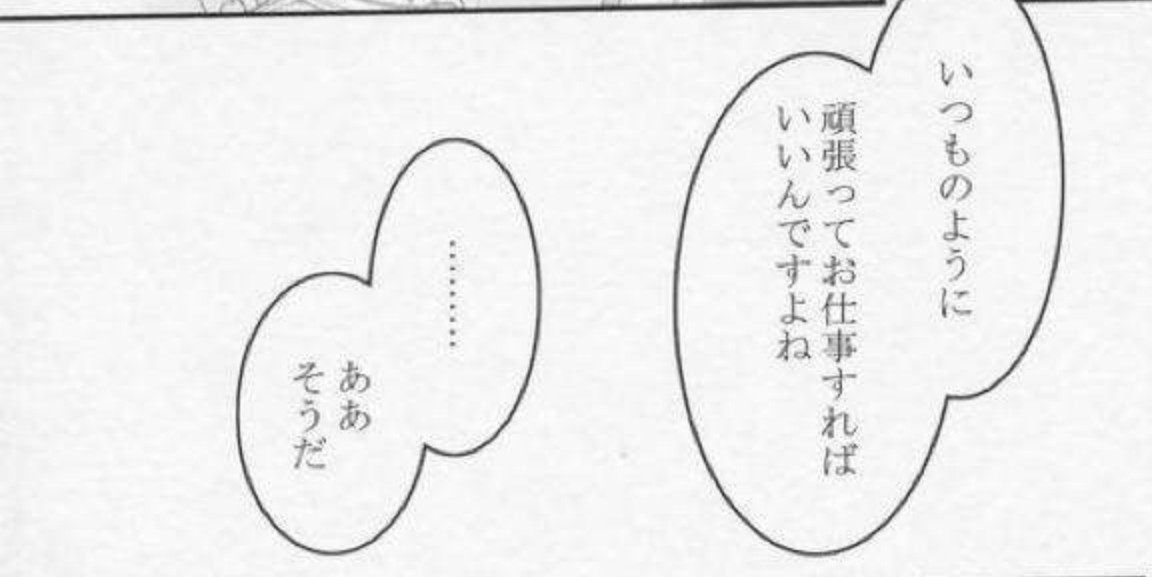 いつものように
頑張ってお仕事すれば
いいんですよね
………
ああ
そうだ